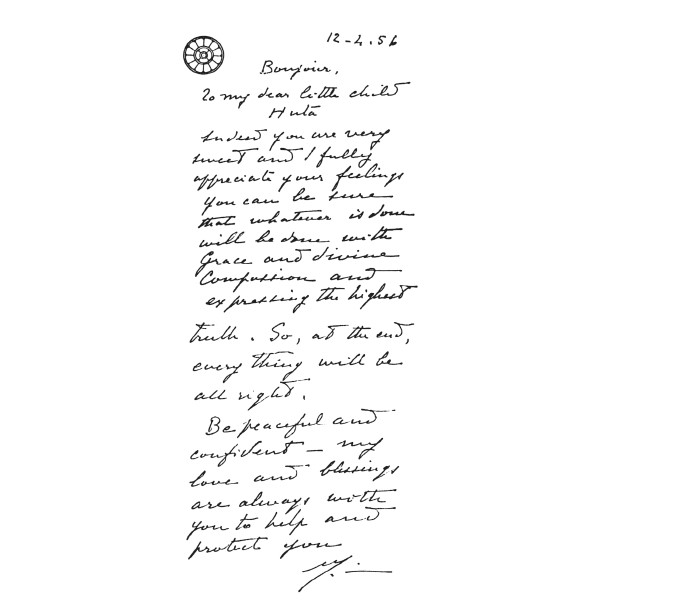 12-4.56
Bonjour,
To my dear little child
Huta
Indeed you are very
sweet and I fully
appreciate your feelings
you can be sure
that whatever is done
will be done with
Grace and divine
Compassion and
expressing the highest
truth. So, at the end,
every thing will be
all right.
Be peaceful and
confident — my
love and blessings
are always with
you to help and
protect you